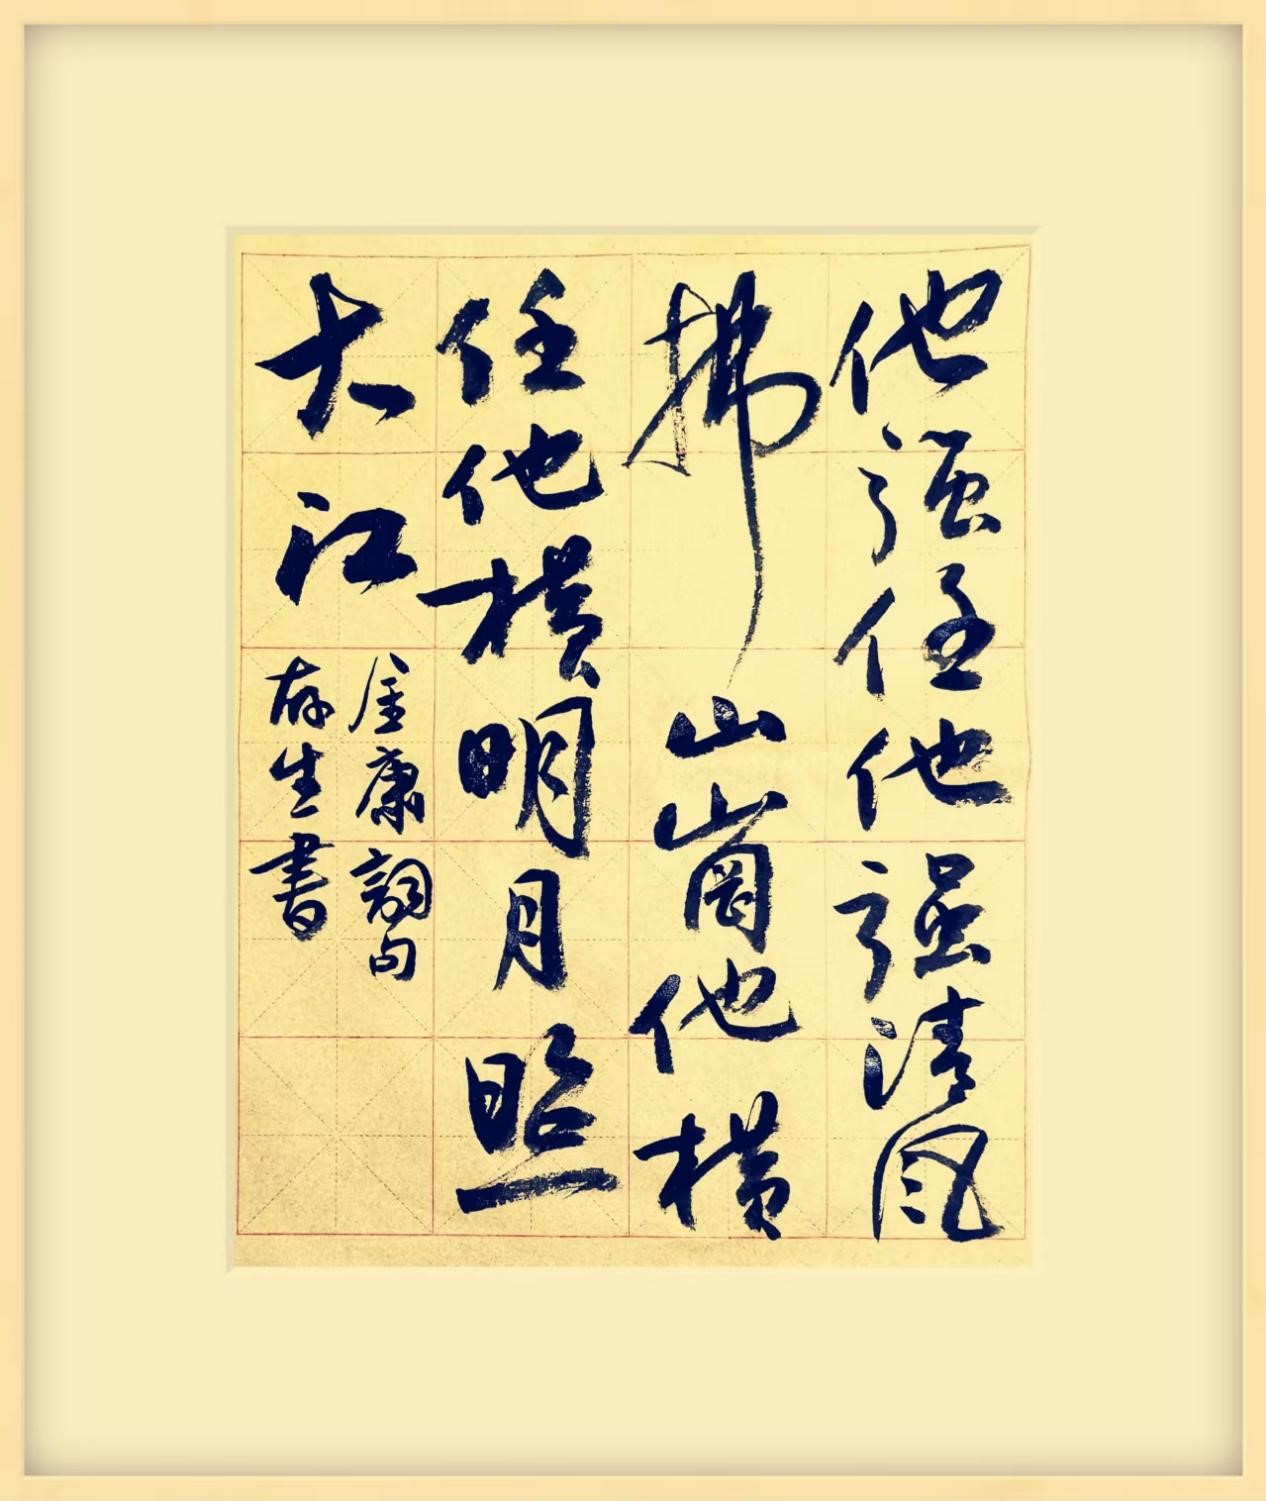 他强任他强清风
拂山崗他横
任他横明月照
大江
金庸詞句
存生書